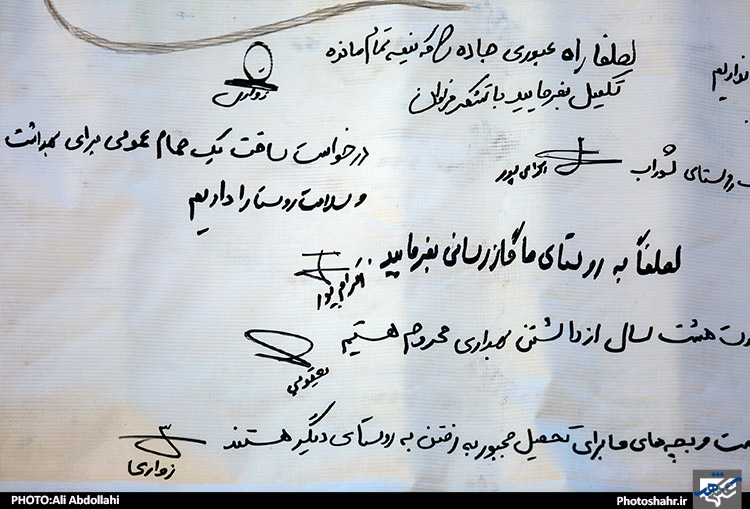 لطفا راه عبوری جاده را که نیمه تمام مانده
تکمیل بفرمایید با تشکر فراوان
زواری
نداریم
درخواست ساخت یک حمام عمومی برای بهداشت
و سلامت روستا را داریم
روستای شوراب
لطفاً به روستای ما گازرسانی بفرمایید.
هشت سال از داشتن بهداری محروم هستیم
یعقوبی
و بچه‌های ما برای تحصیل مجبور به رفتن به روستای دیگر هستند
زواری
PHOTO:Ali Abdollahi
Photoshahr.ir